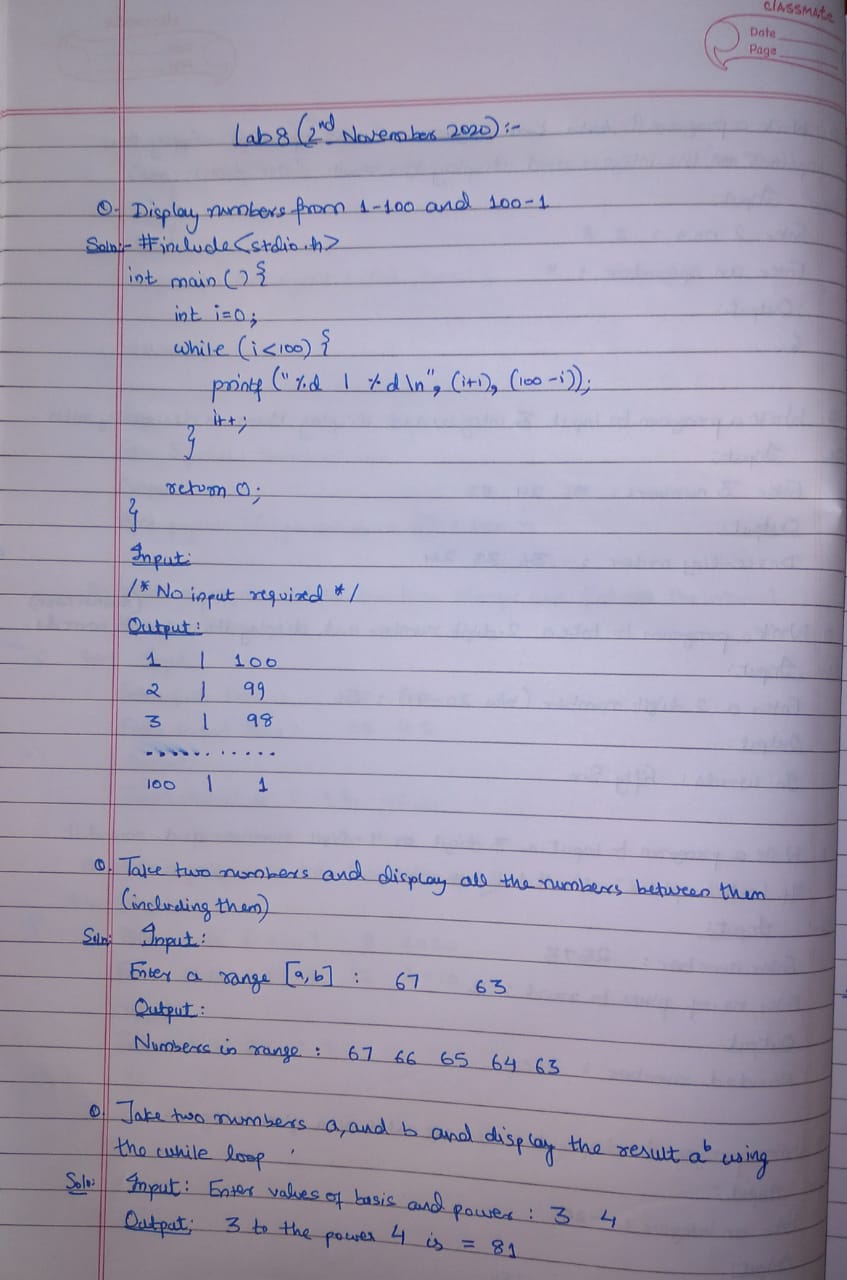 classmate
Date
Page
Lab 8 (2nd November 2020) :-
Q. Display numbers from 1-100 and 100-1
Soln:- #include<stdio.h>
int main () {
int i=0;
while (i<100) {
printf ("%d | %d \n", (i+1), (100-i));
i++;
}
return 0;
}
Input:
/* No input required */
Output:
1 | 100
2 | 99
3 | 98
...........
100 | 1
Q. Take two numbers and display all the numbers between them
(including them)
Soln: Input:
Enter a range [a,b] : 67 63
Output:
Numbers in range : 67 66 65 64 63
Q. Take two numbers a, and b and display the result a^b using
the while loop
Soln: Input: Enter values of basis and power : 3 4
Output: 3 to the power 4 is = 81